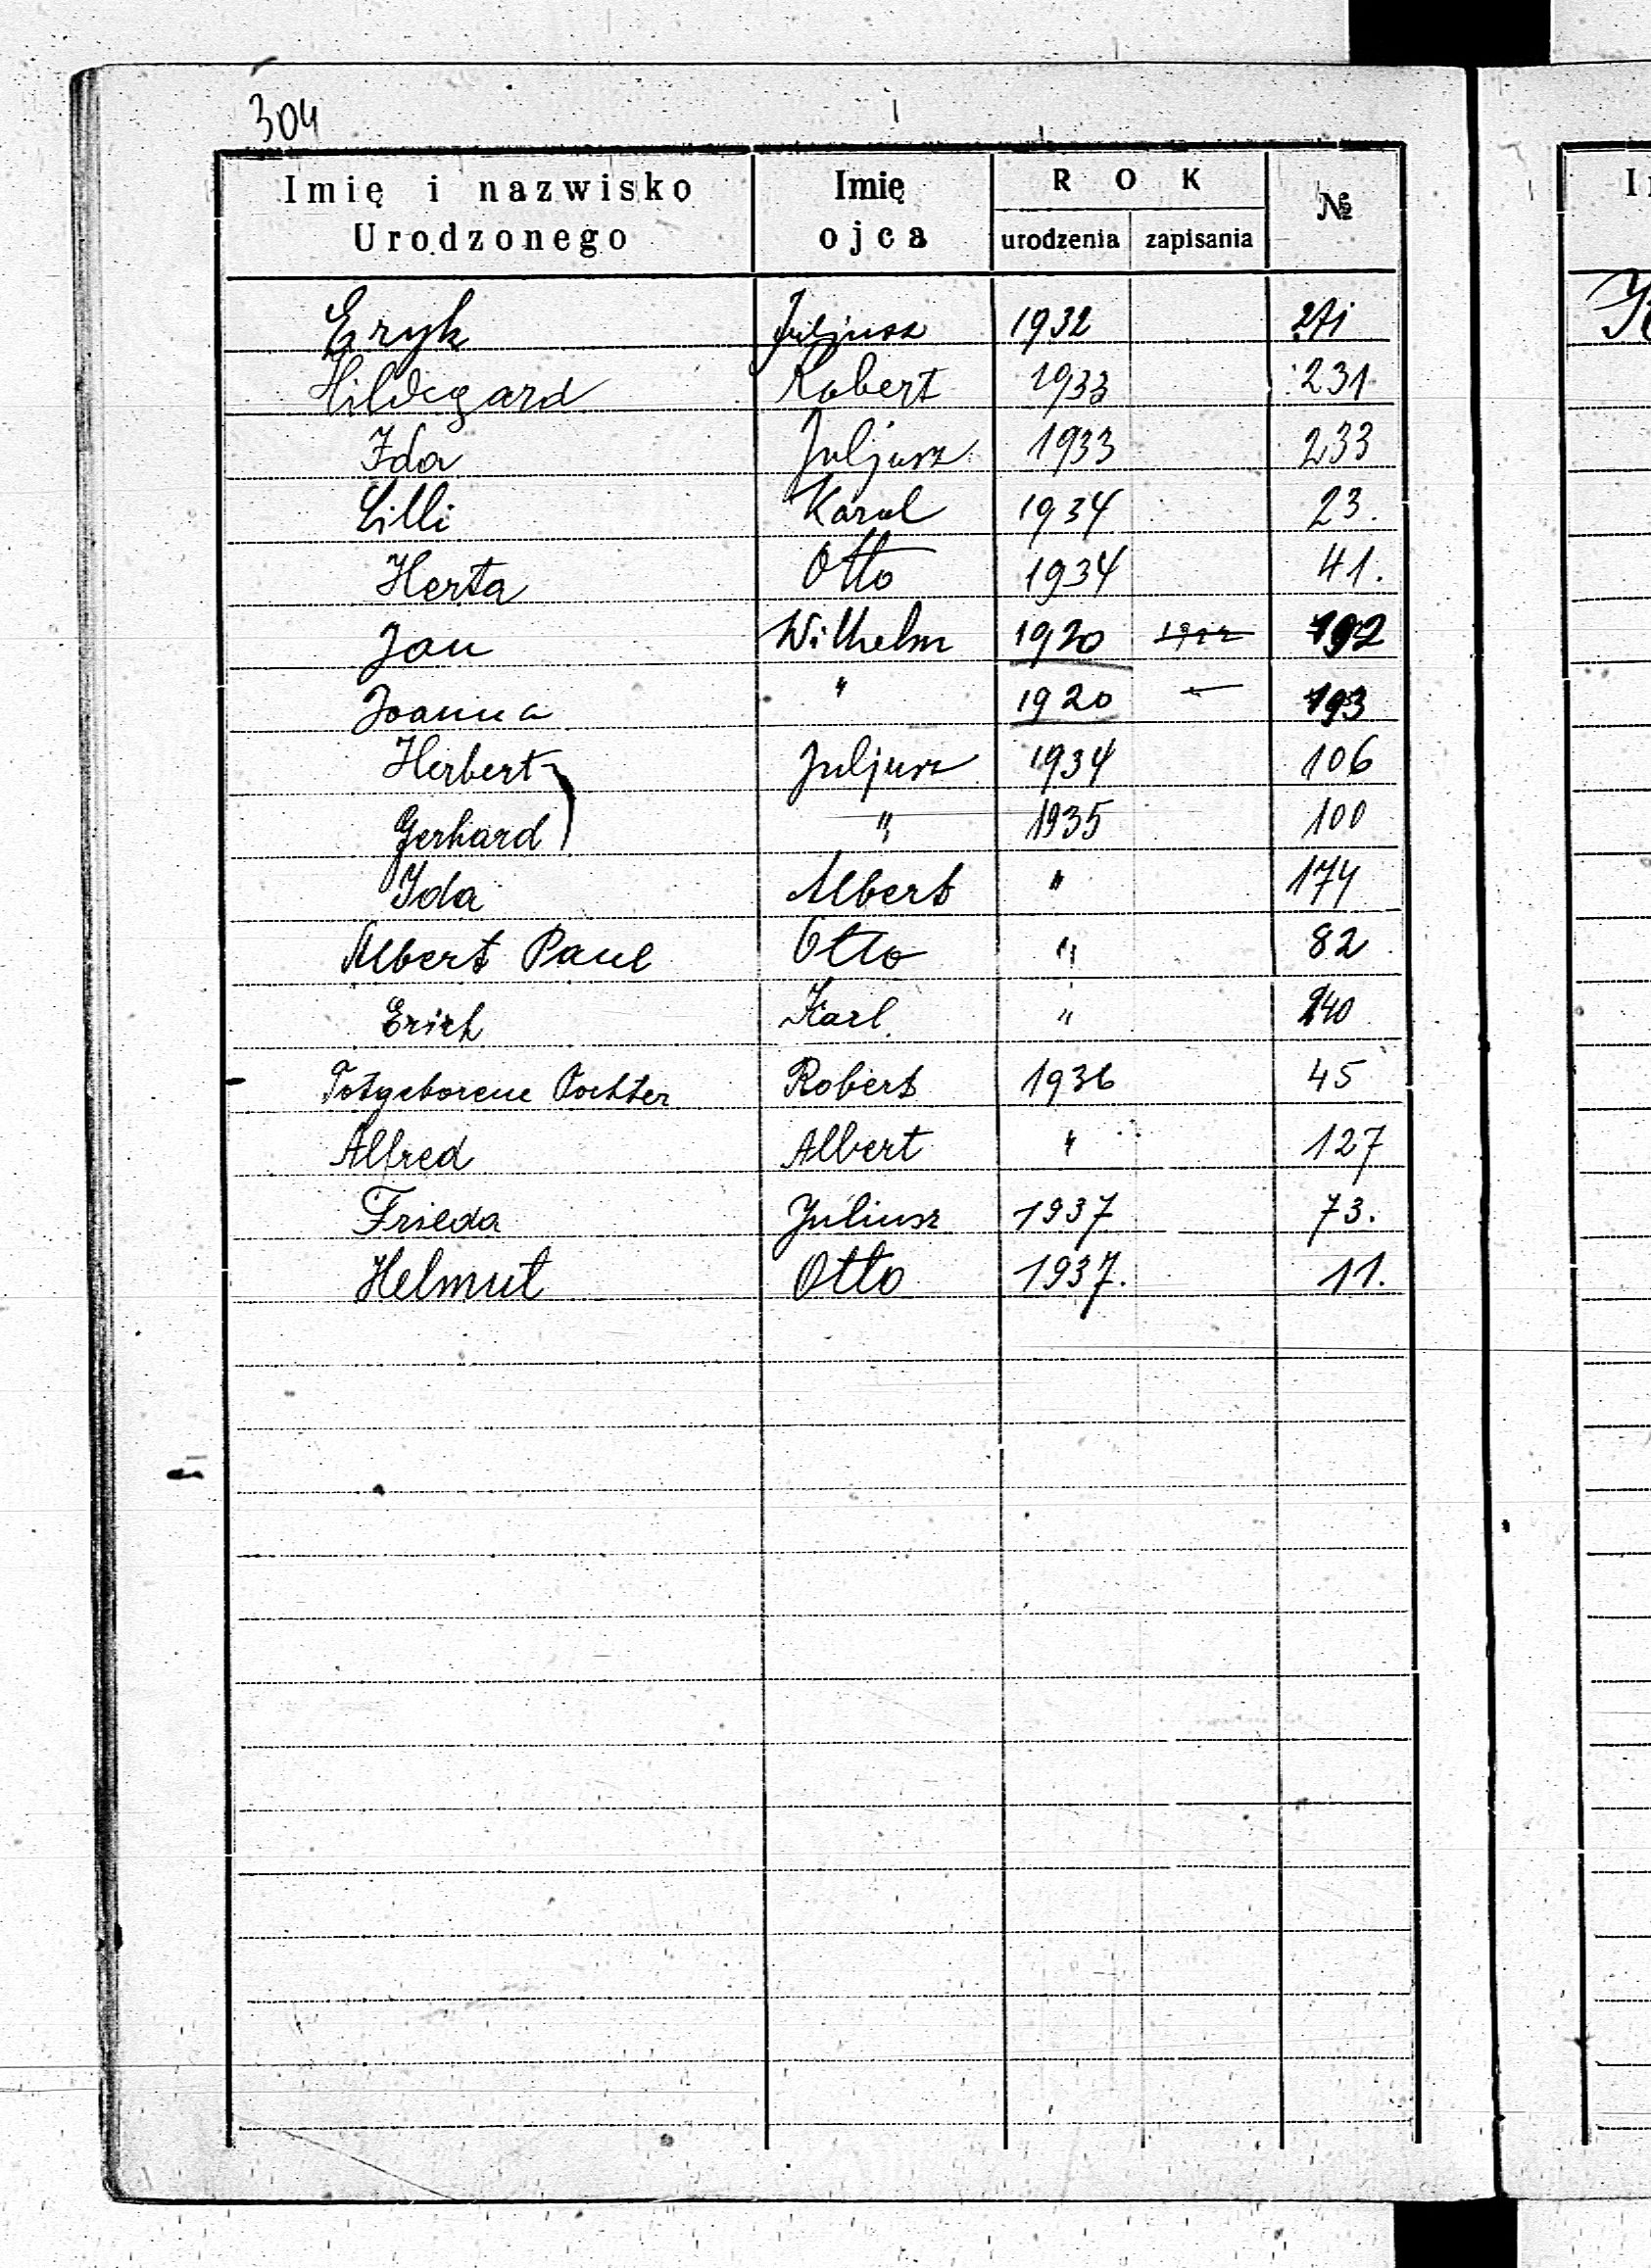 304
Imię i nazwisko Urodzonego Imię ojca ROK №
urodzenia zapisania
Eryk Juljusz 1932 271
Hildegard Robert 1933 231
Ida Juljusz 1933 233
Lilli Karol 1934 23.
Herta Otto 1934 41.
Jan Wilhelm 1920 192
Joanna " 1920 193
Herbert Juljusz 1934 106
Gerhard " 1935 100
Ida Albert " 174
Albert Paul Otto " 82
Erich Karl " 240
Totgeborene Tochter Robert 1936 45
Alfred Albert " 127
Frieda Juliusz 1937 73.
Helmut Otto 1937. 11.